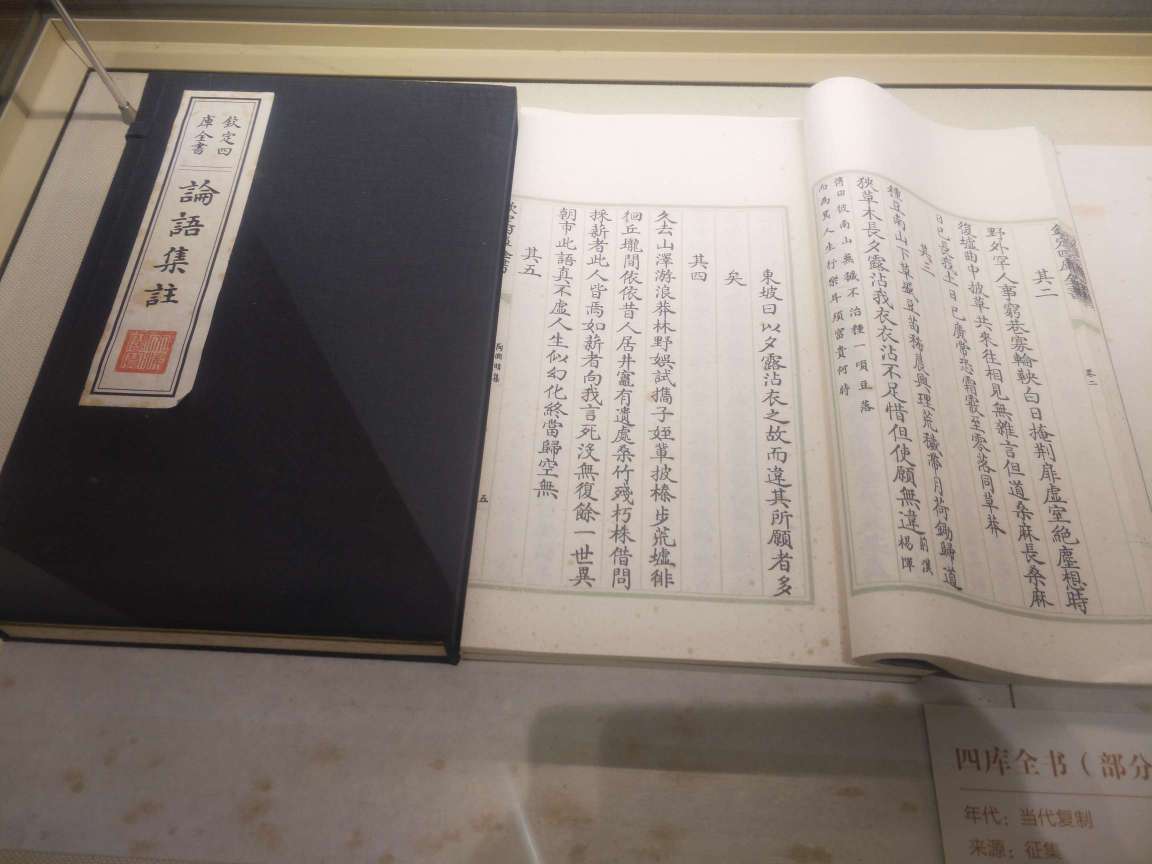 欽定四
庫全書
論語集註
卷二
其二
野外罕人事窮巷寡輪鞅白日掩荆扉虛室絕塵想時
復墟曲中披草共來往相見無雜言但道桑麻長桑麻
日已長我土日已廣常恐霜霰至零落同草莽
其三
種豆南山下草盛豆苗稀晨興理荒穢帶月荷鋤歸道
狹草木長夕露沾我衣衣沾不足惜但使願無違前漢楊惲
傳田彼南山蕪穢不治種一頃豆落
而為萁人生行樂耳須富貴何時
東坡曰以夕露沾衣之故而違其所願者多
矣
其四
久去山澤游浪莽林野娛試攜子姪輩披榛步荒墟徘
徊丘壠間依依昔人居井竈有遺處桑竹殘朽株借問
採薪者此人皆焉如薪者向我言死沒無復餘一世異
朝市此語真不虛人生似幻化終當歸空無
其五
陶淵明集
五
四库全书（部分
年代：当代复制
来源：征集